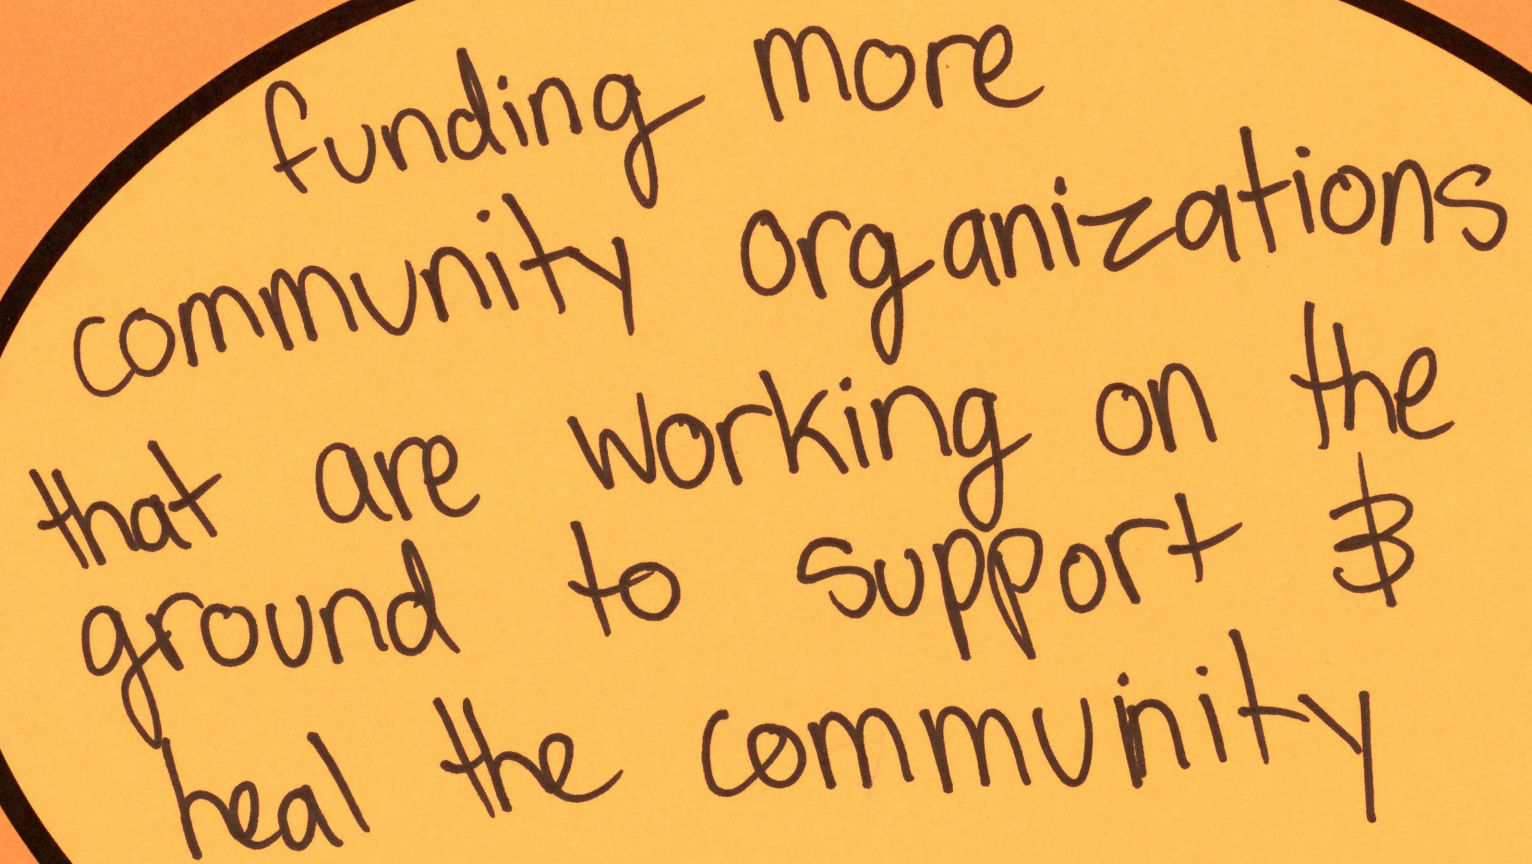 funding more
community organizations
that are working on the
ground to support &
heal the community